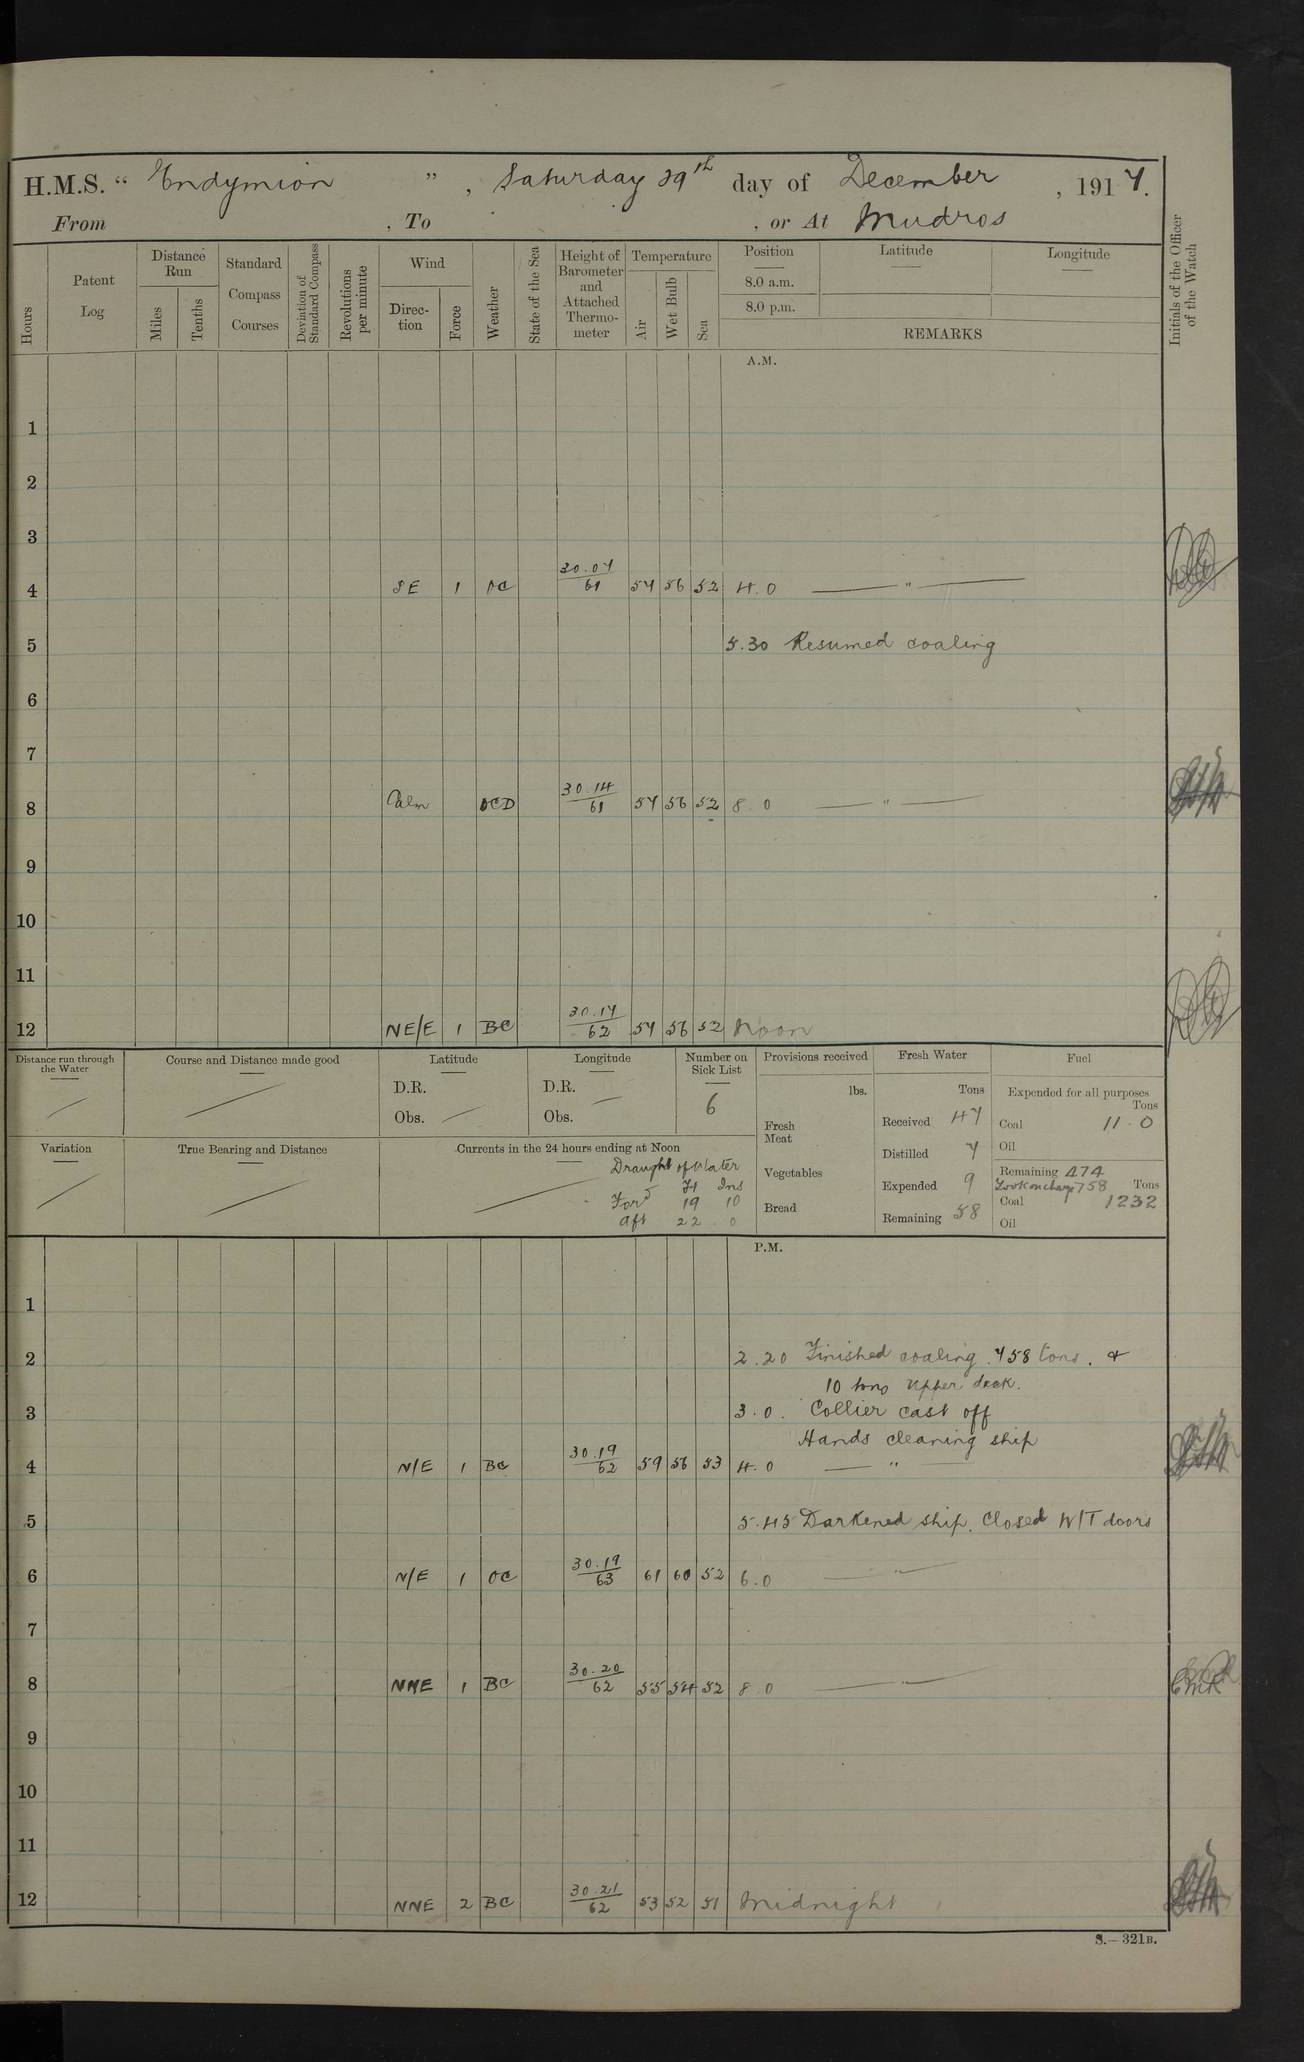 H.M.S. “ Endymion ” , Saturday 29th day of December , 1917.
From , To , or At Mudros
Hours
Patent Log
Distance Run
Miles
Tenths
Standard Compass Courses
Deviation of Standard Compass
Revolutions per minute
Wind
Direc-tion
Force
Weather
State of the Sea
Height of Barometer and Attached Thermo-meter
Temperature
Air
Wet Bulb
Sea
Position
8.0 a.m.
8.0 p.m.
Latitude
Longitude
REMARKS
Initials of the Officer of the Watch
A.M.
1
2
3
4 SE 1 OC 30.07/61 57 56 52 4.0 "
5 5.30 Resumed coaling
6
7
8 Calm OCD 30.14/61 57 56 52 8 0 "
9
10
11
12 NE/E 1 BC 30.17/62 57 56 52 Noon
Distance run through the Water
Course and Distance made good
Latitude
D.R.
Obs.
Longitude
D.R.
Obs.
Number on Sick List
6
Variation
True Bearing and Distance
Currents in the 24 hours ending at Noon
Draught of Water
Ft Ins
Ford 19 10
aft 22 0
Provisions received
lbs.
Fresh Meat
Vegetables
Bread
Fresh Water
Tons
Received 47
Distilled 7
Expended 9
Remaining 58
Fuel
Expended for all purposes
Tons
Coal 11.0
Oil
Remaining 474
Took on charge 758 Tons
Coal 1232
Oil
P.M.
1
2 2.20 Finished coaling. 758 tons. &
10 tons upper deck.
3 3.0. Collier cast off
Hands cleaning ship
4 N/E 1 BC 30.19/62 59 56 53 4.0 "
5 5.45 Darkened ship. Closed W/T doors
6 N/E 1 OC 30.19/63 61 60 52 6.0 "
7
8 NNE 1 BC 30.20/62 55 54 52 8 0 "
9
10
11
12 NNE 2 BC 30.21/62 53 52 51 Midnight
S.—321B.